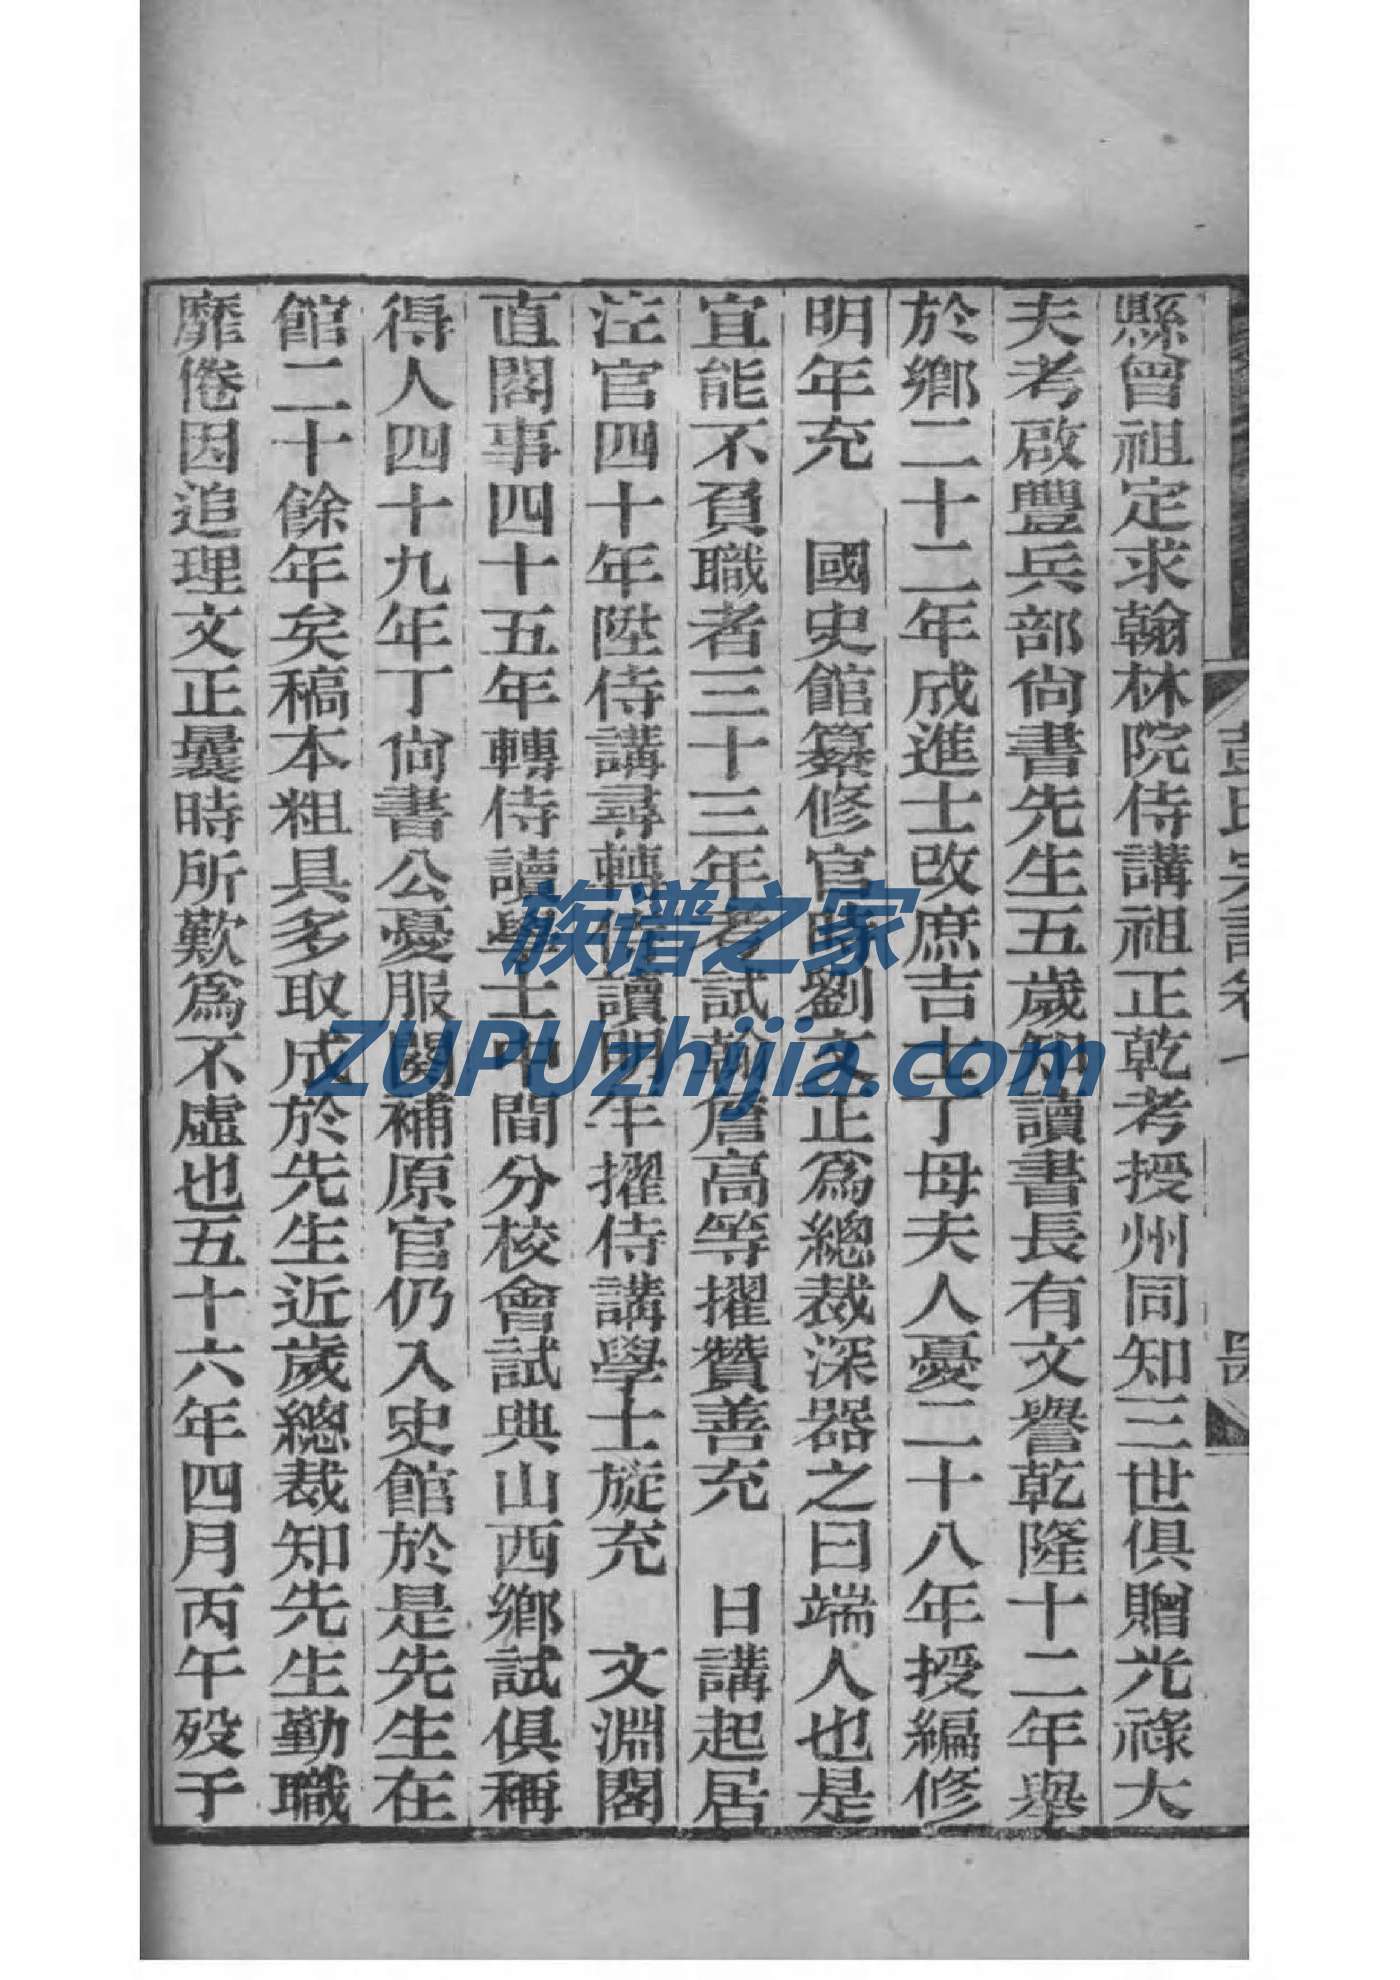 縣曾祖定求翰林院侍講祖正乾考授州同知三世俱贈光祿大
夫考啟豐兵部尙書先生五歲知讀書長有文譽乾隆十二年舉
於鄉二十二年成進士改庶吉士丁母夫人憂二十八年授編修
明年充 國史館纂修官時劉文正爲總裁深器之曰端人也是
宜能不負職者三十三年考試翰詹高等擢贊善充 日講起居
注官四十年陞侍講尋轉侍讀明年擢侍講學士旋充 文淵閣
直閣事四十五年轉侍讀學士中間分校會試典山西鄉試俱稱
得人四十九年丁尙書公憂服闋補原官仍入史館於是先生在
館二十餘年矣稿本粗具多取成於先生近歲總裁知先生勤職
靡倦因追理文正曩時所歎爲不虛也五十六年四月丙午歿于
族谱之家
ZUPUzhijia.com